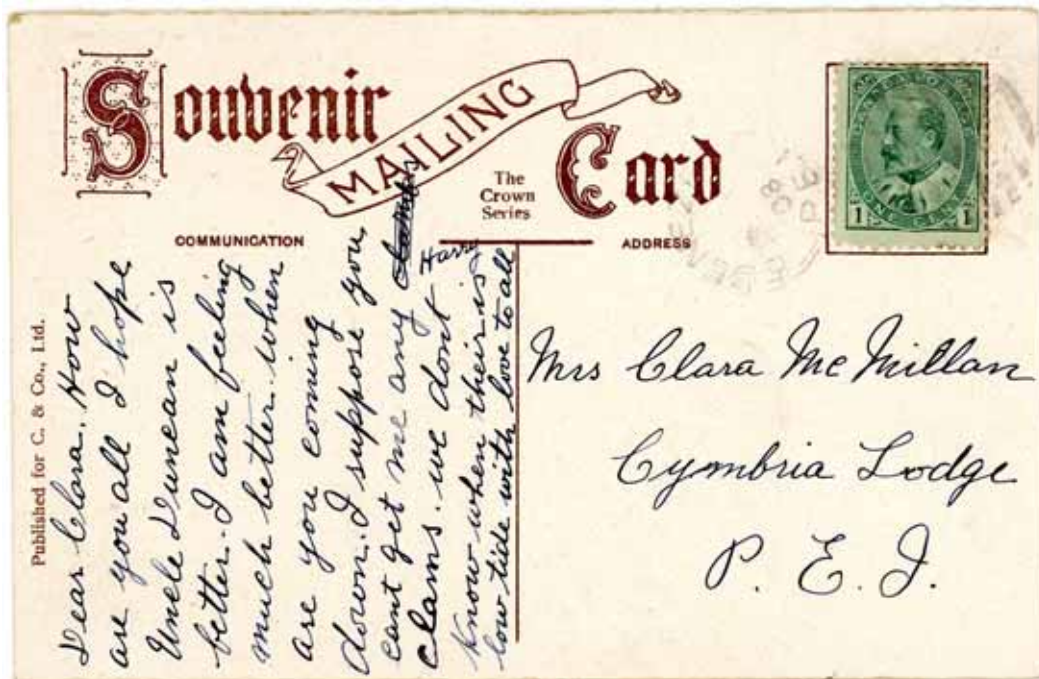 Souvenir
MAILING
Card
The
Crown
Series
COMMUNICATION
ADDRESS
CANADA POSTAGE
ONE CENT
1 1
Published for C. & Co., Ltd.
Dear Clara. How
are you all I hope
Uncle Duncan is
better. I am feeling
much better. when
are you coming
down. I suppose you
cant get me any
clams. we dont
know when their is
low tide with love to all
Harry
Mrs Clara McMillan
Cymbria Lodge
P. E. I.